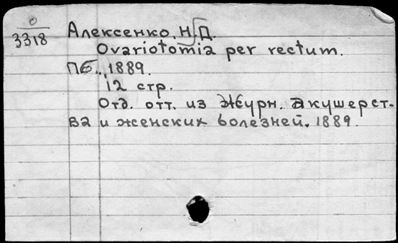 0
3318
Алексенко, Н.Д.
Ovariotomia per rectum.
Пб., 1889.
12 стр.
Отд. отт. из Журн. акушерст-
ва и женских болезней. 1889.